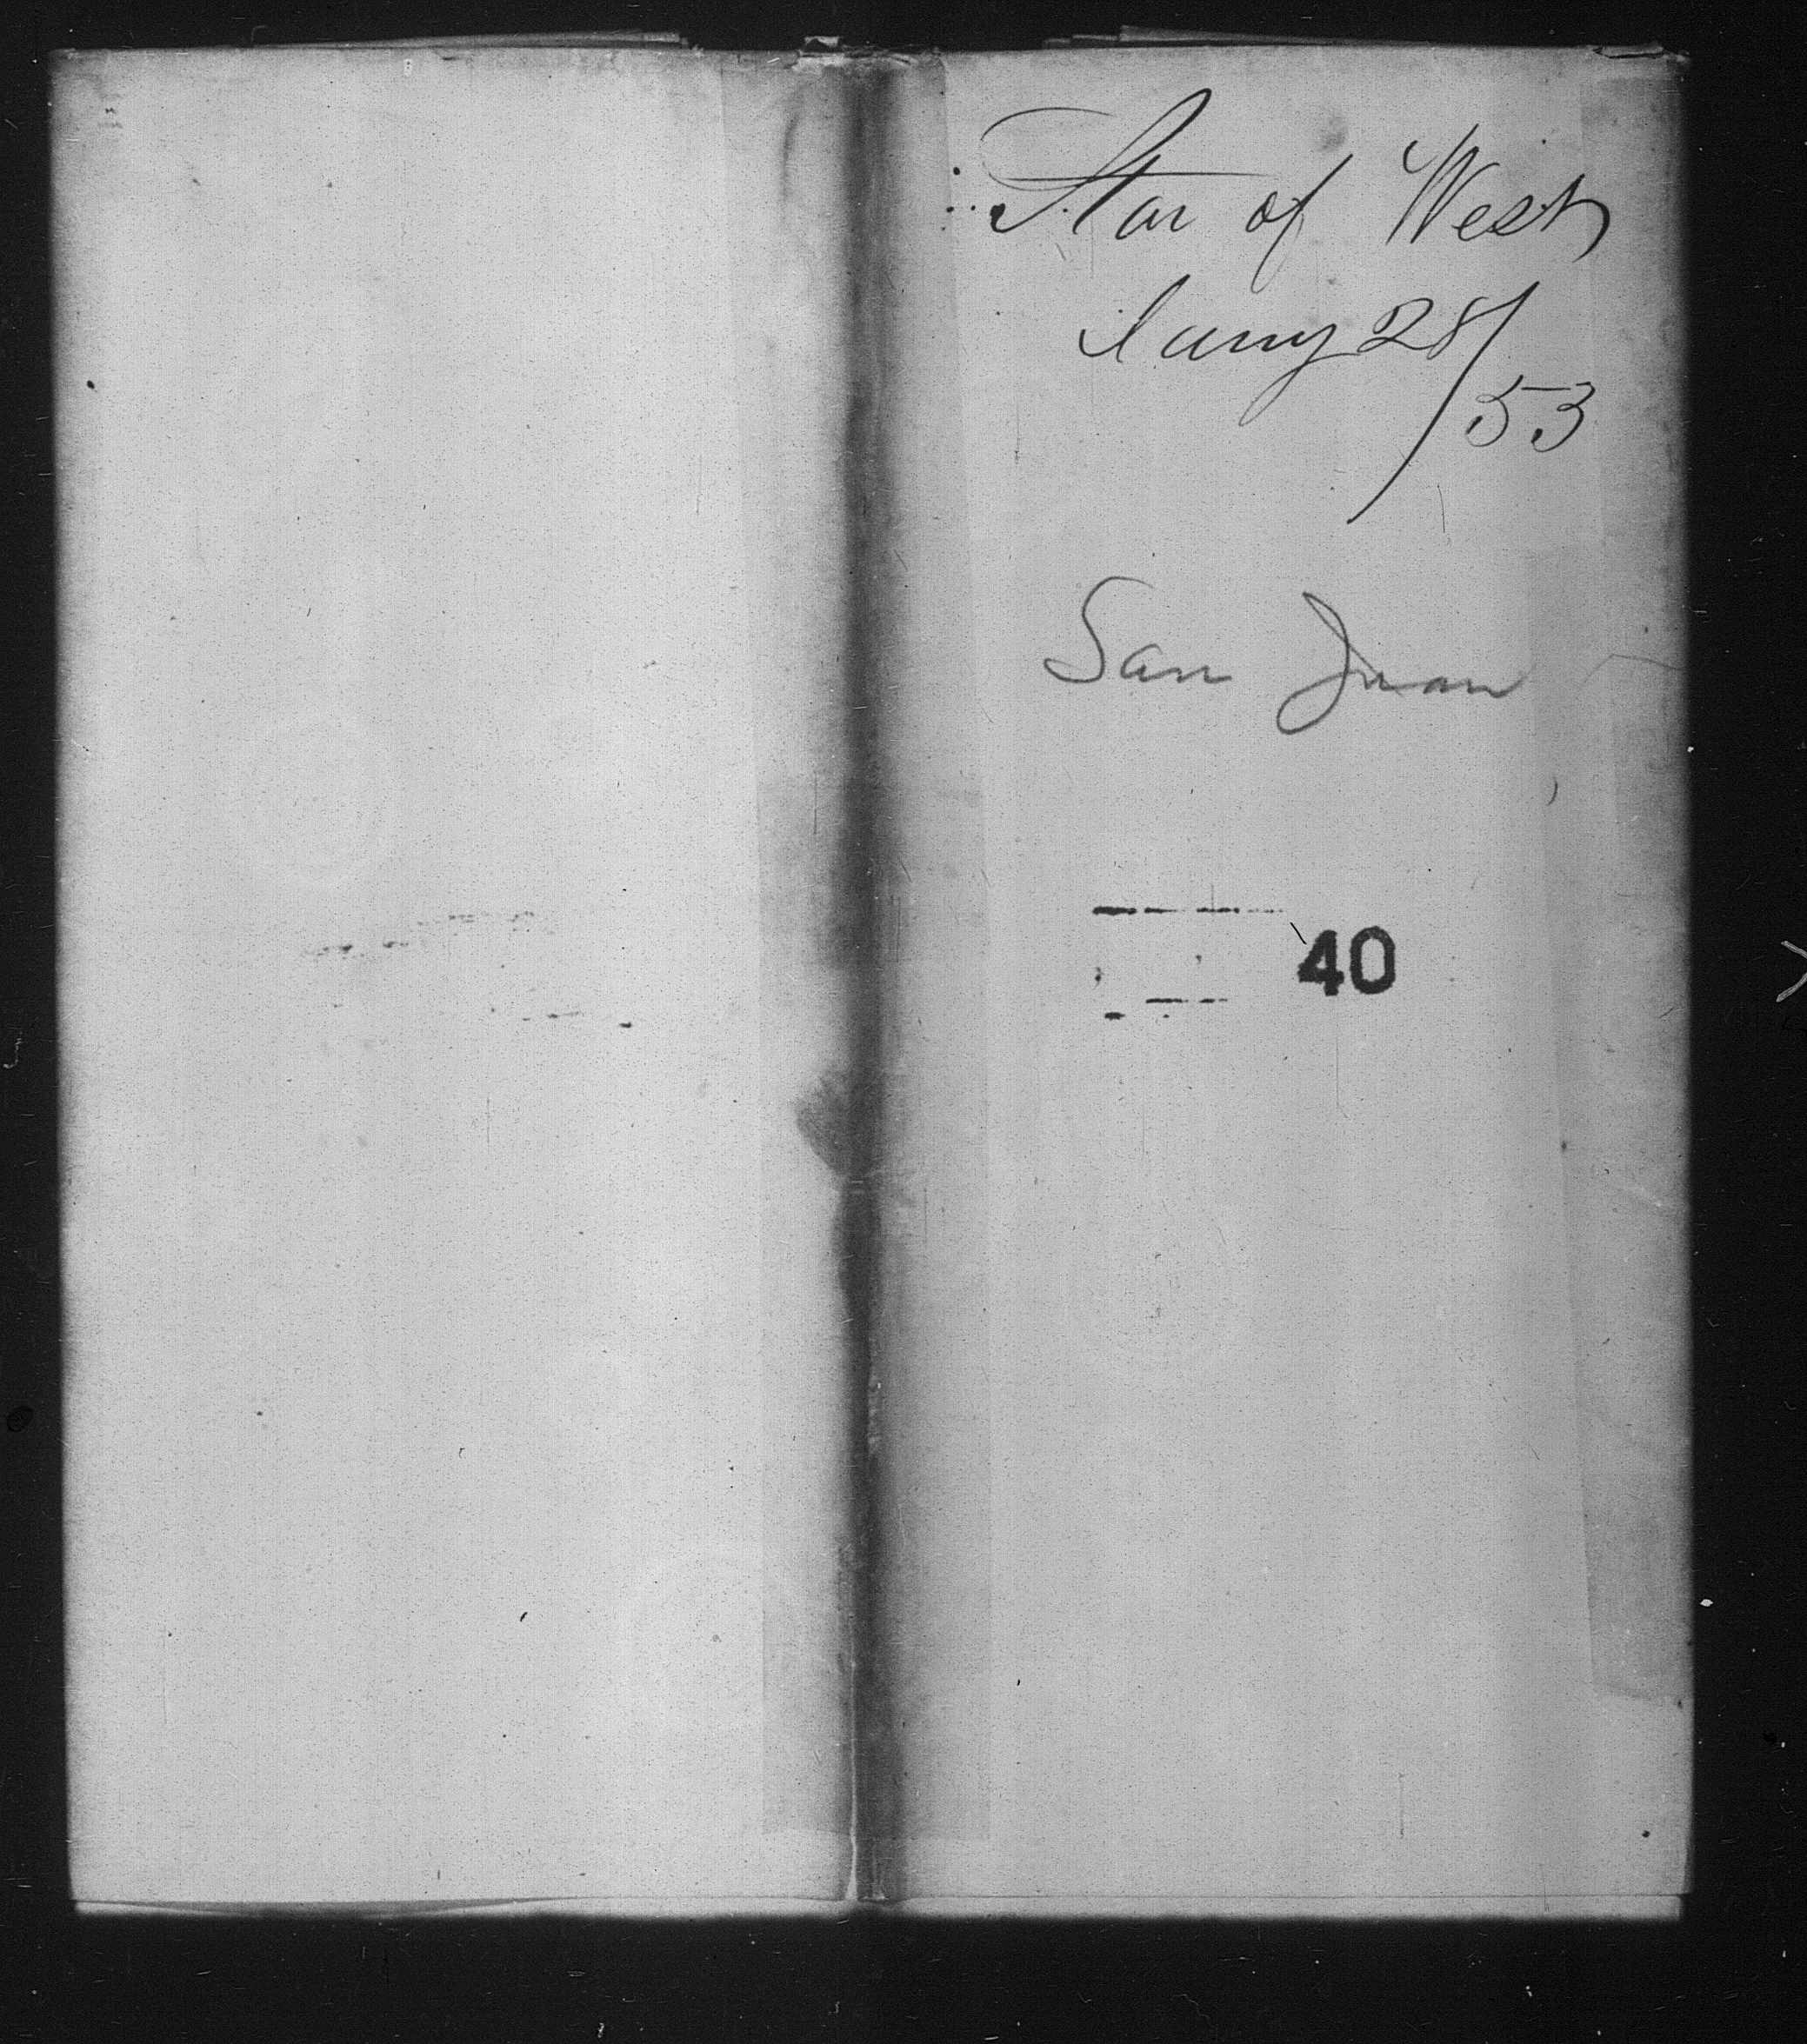 Star of West
Jany 28/
53
San Juan
40